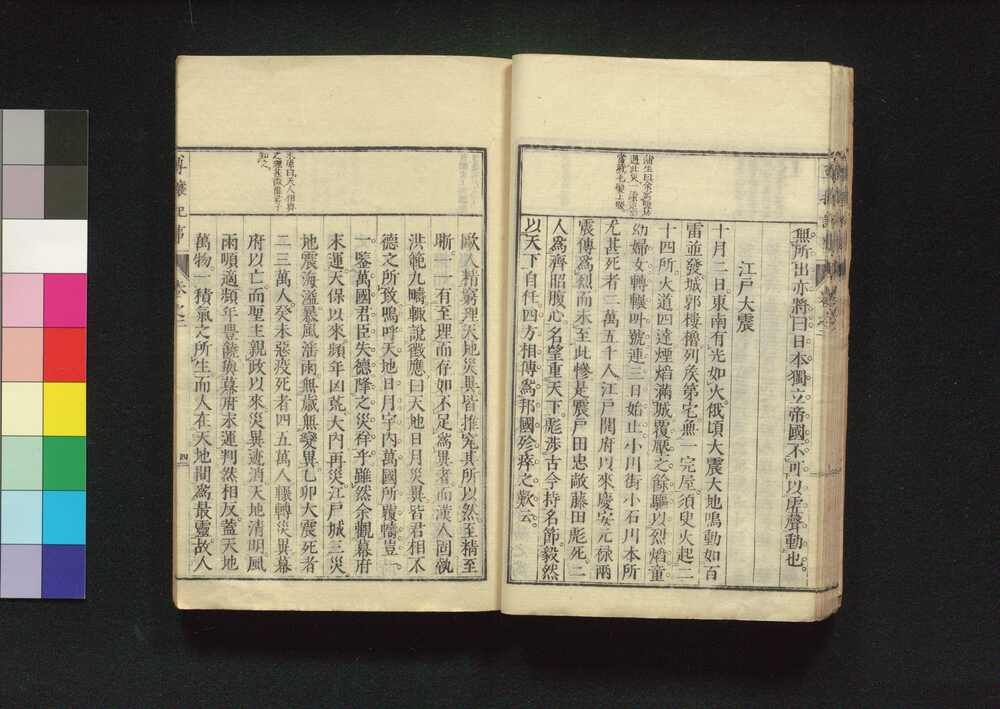 無所出亦將曰日本獨立帝國不可以虛聲動也
江戸大震
十月二日東南有光如火俄頃大震大地鳴動如百
雷並發城郭樓櫓列矦第宅無一完屋須臾火起二
十四所火道四達煙焰滿城覆壓之餘驅以烈焰童
幼婦女轉輾呌號連三日始止小川街小石川本所
尤甚死者二萬五千人江戸開府以來慶安元祿兩
震傳爲烈而未至此慘是震戸田忠敞藤田彪死二
人爲齊昭腹心名望重天下彪渉古今持名節毅然
以天下自任四方相傳爲邦國殄瘁之歎云
歐人精窮理天地災異皆推究其所以然至精至
晰一一有至理而存如不足爲異者而漢人固執
洪範九疇輙説徴應曰天地日月災異皆君相不
德之所致嗚呼天地日月宇内萬國所覆幬豈一
一鑒萬國君臣失德降之災祥乎雖然余觀幕府
末運天保以來頻年凶荒大内再災江戸城三災
地震海溢暴風滛雨無歳無變異乙卯大震死者
二三萬人癸未惡疫死者四五萬人輾轉災異幕
府以亡而聖主親政以來災異遽消天地清明風
雨順適頻年豐饒與幕府末運判然相反蓋天地
萬物一積氣之所生而人在天地間爲最靈故人
尊攘紀事
卷之二
四